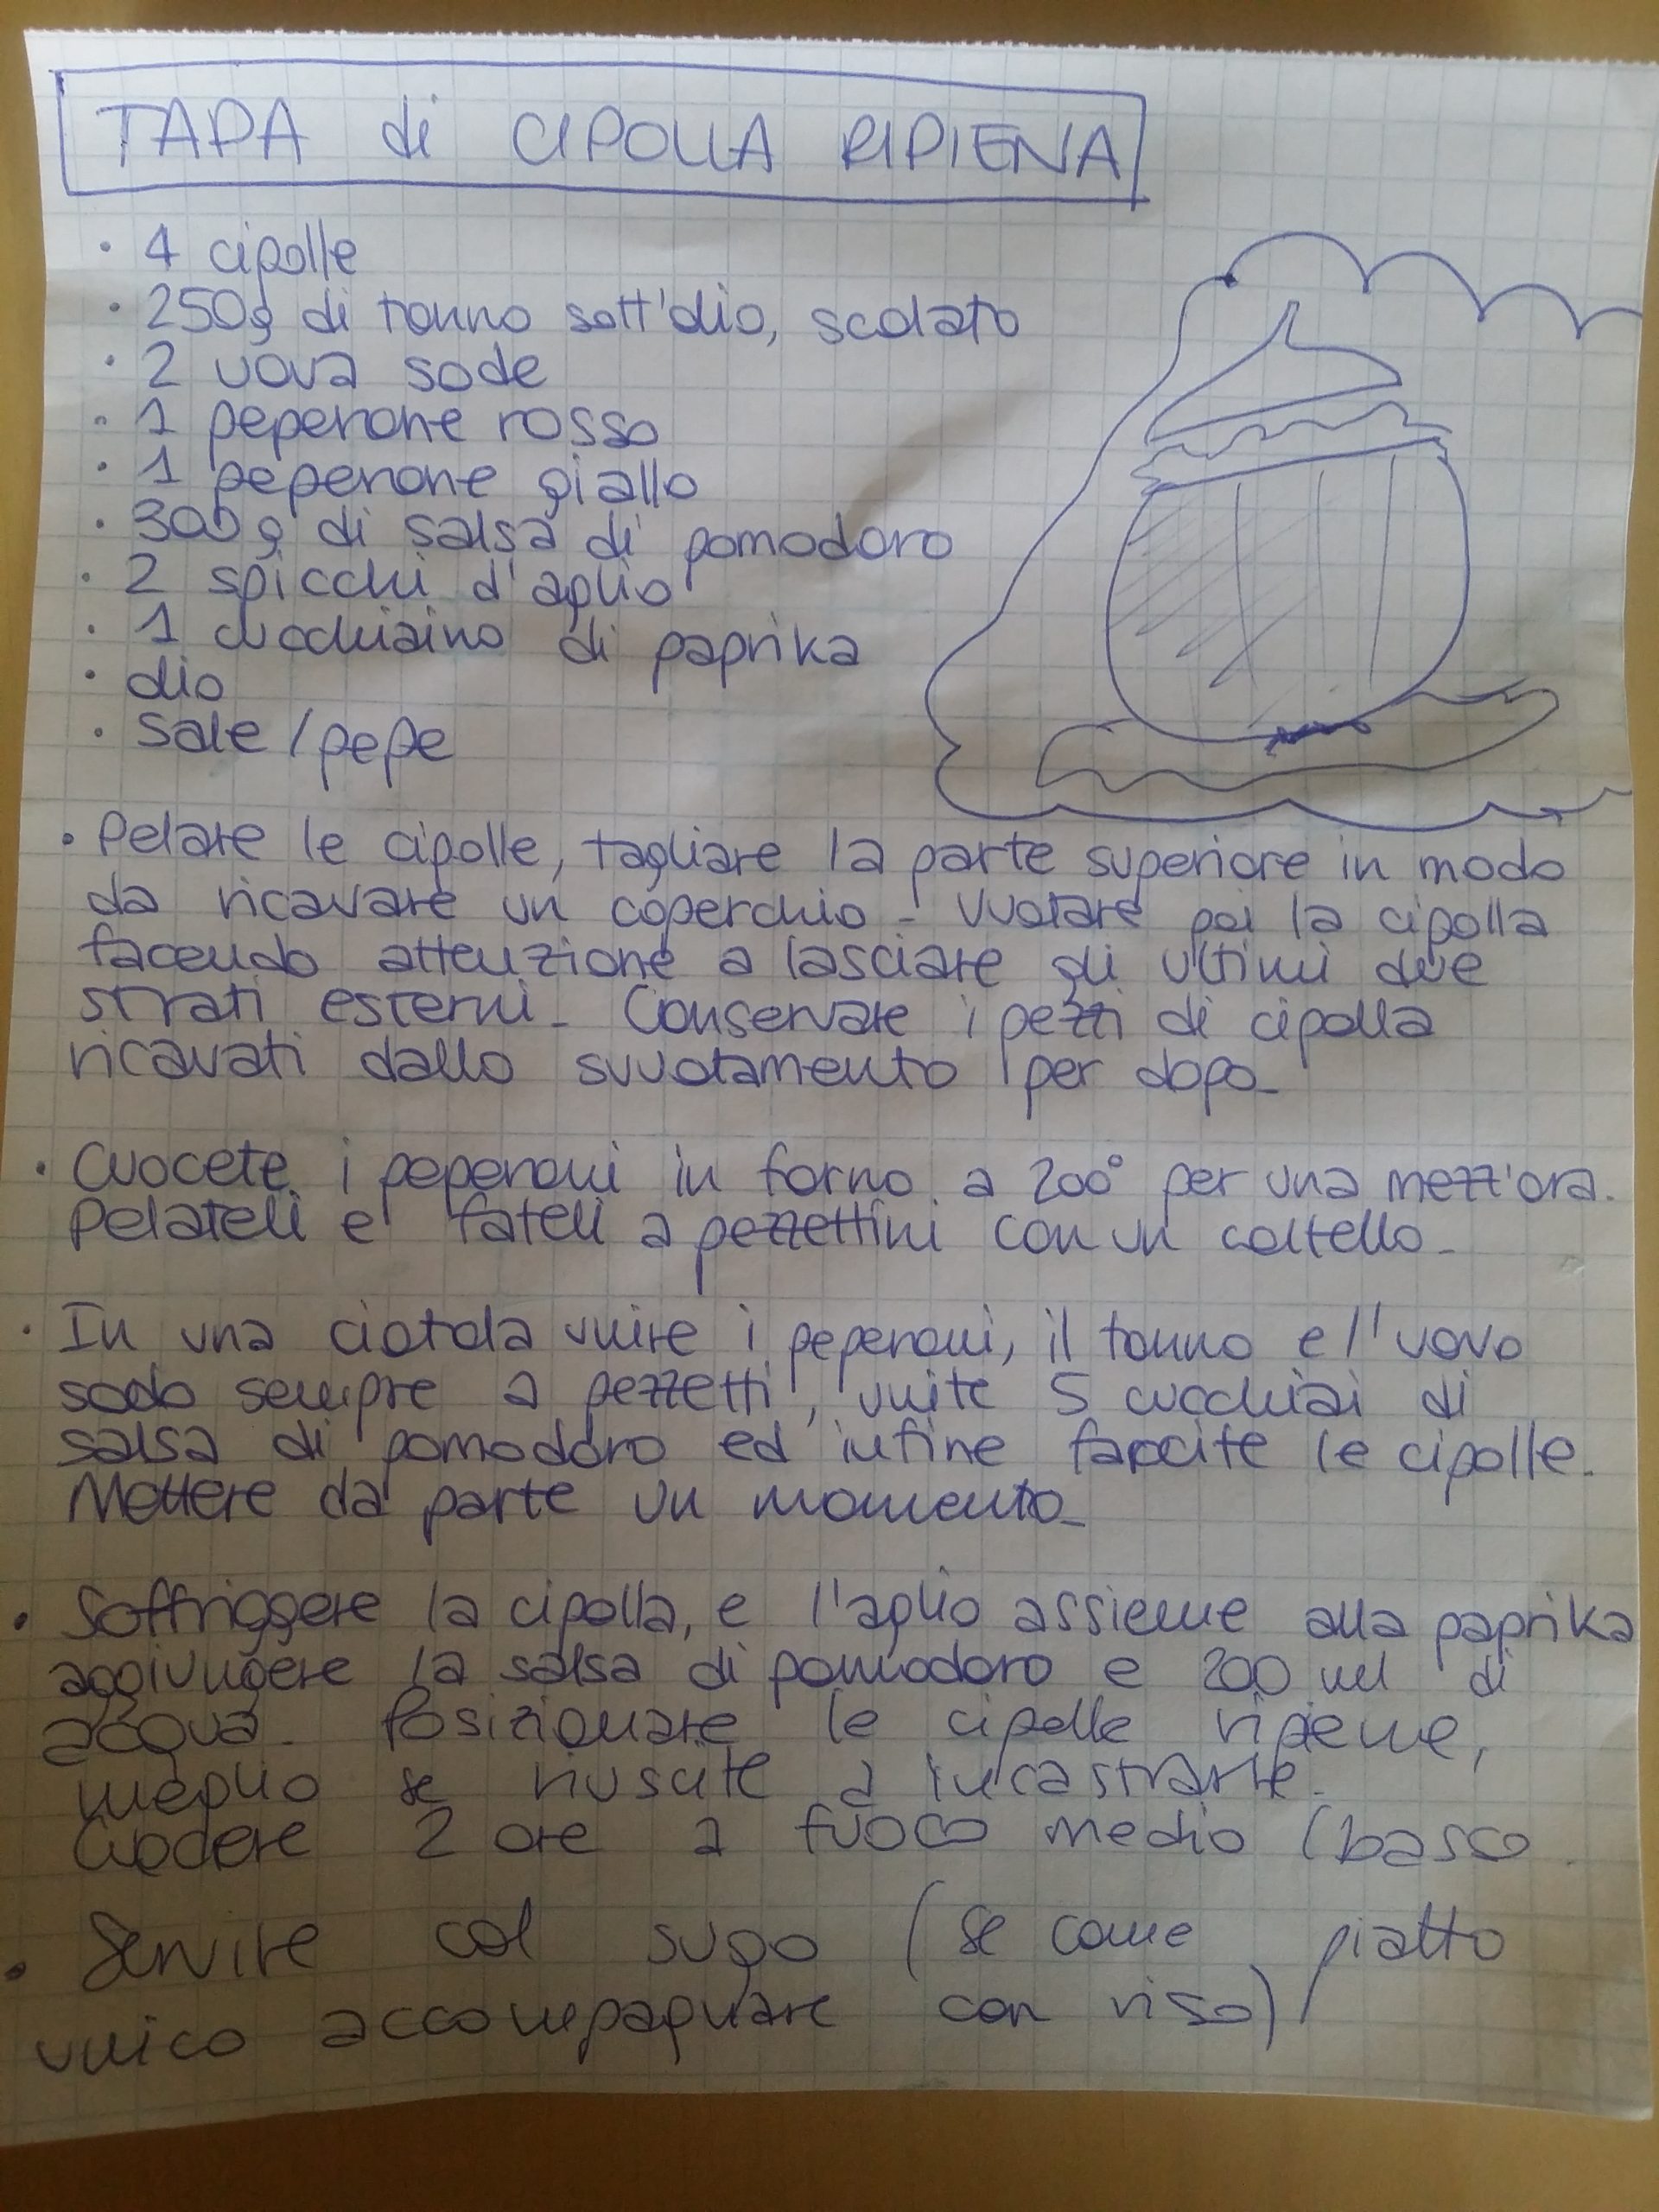 TAPA di CIPOLLA RIPIENA
• 4 cipolle
• 250g di tonno sott'olio, scolato
• 2 uova sode
• 1 peperone rosso
• 1 peperone giallo
• 300 g di salsa di pomodoro
• 2 spicchi d'aglio
• 1 cucchiaino di paprika
• olio
• sale / pepe
• Pelare le cipolle, tagliare la parte superiore in modo
da ricavare un coperchio - Vuotare poi la cipolla
facendo attenzione a lasciare gli ultimi due
strati esterni - Conservare i pezzi di cipolla
ricavati dallo svuotamento per dopo -
• Cuocete i peperoni in forno a 200° per una mezz'ora.
Pelateli e fateli a pezzettini con un coltello -
• In una ciotola unire i peperoni, il tonno e l'uovo
sodo sempre a pezzetti, unite 5 cucchiai di
salsa di pomodoro ed infine farcite le cipolle.
Mettere da parte un momento -
• Soffriggere la cipolla, e l'aglio assieme alla paprika
aggiungere la salsa di pomodoro e 200 ml di
acqua. Posizionare le cipolle ripiene,
meglio se riuscite a incastrarle.
Cuocere 2 ore a fuoco medio / basso.
• Servire col sugo (se come piatto
unico accompagnare con riso)